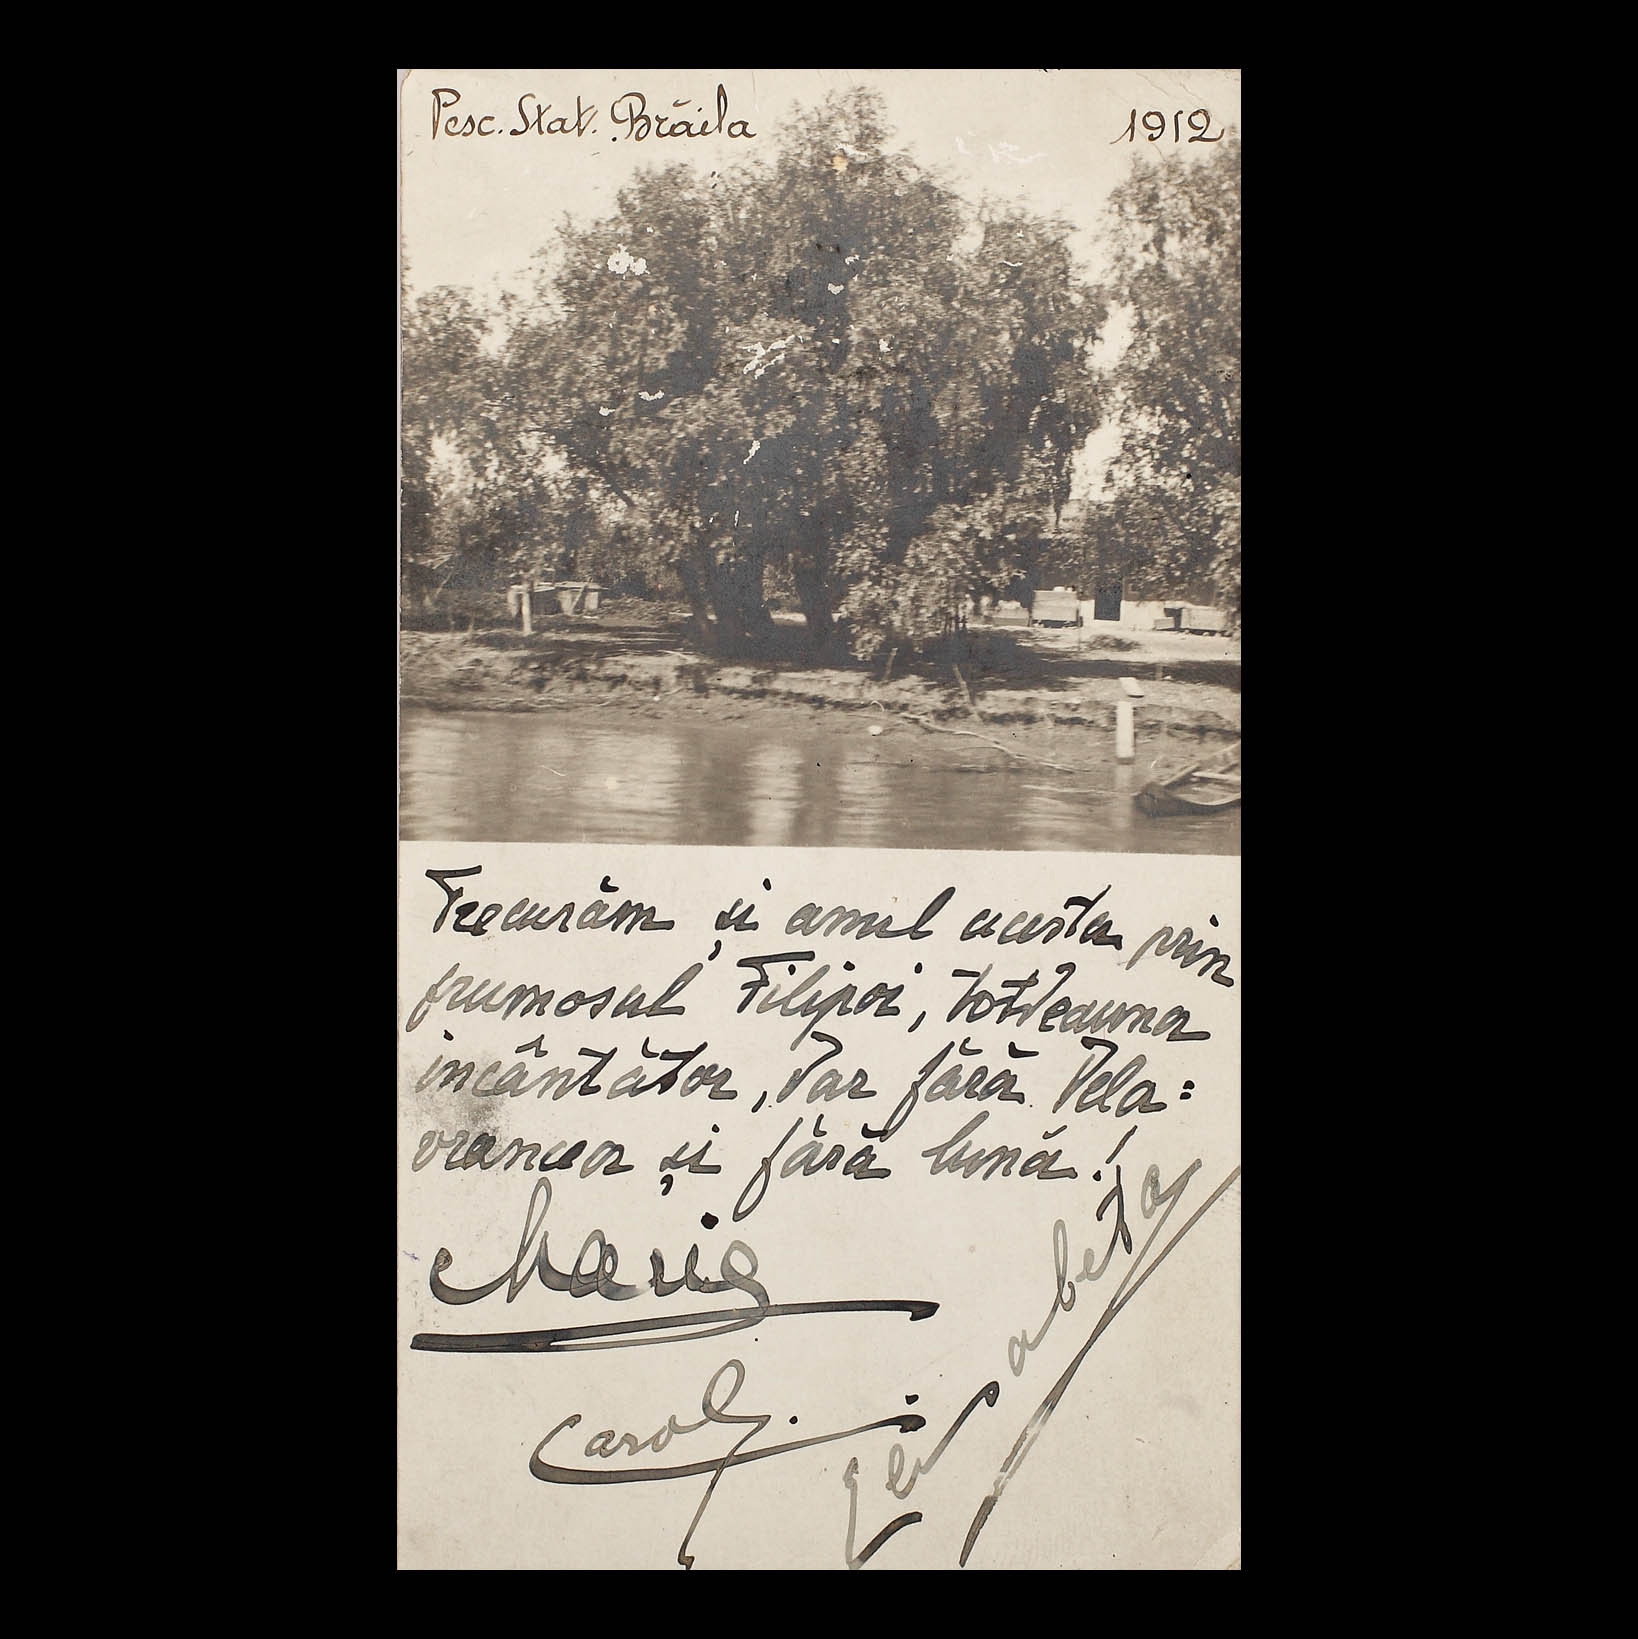 Pesc. Stat. Brăila 1912
Trecurăm și anul acesta prin
frumosul Filipoi, totdeauna
încântător, dar fără Dela=
vrancea și fără lună!
Maria
Carol.
Elisabeta